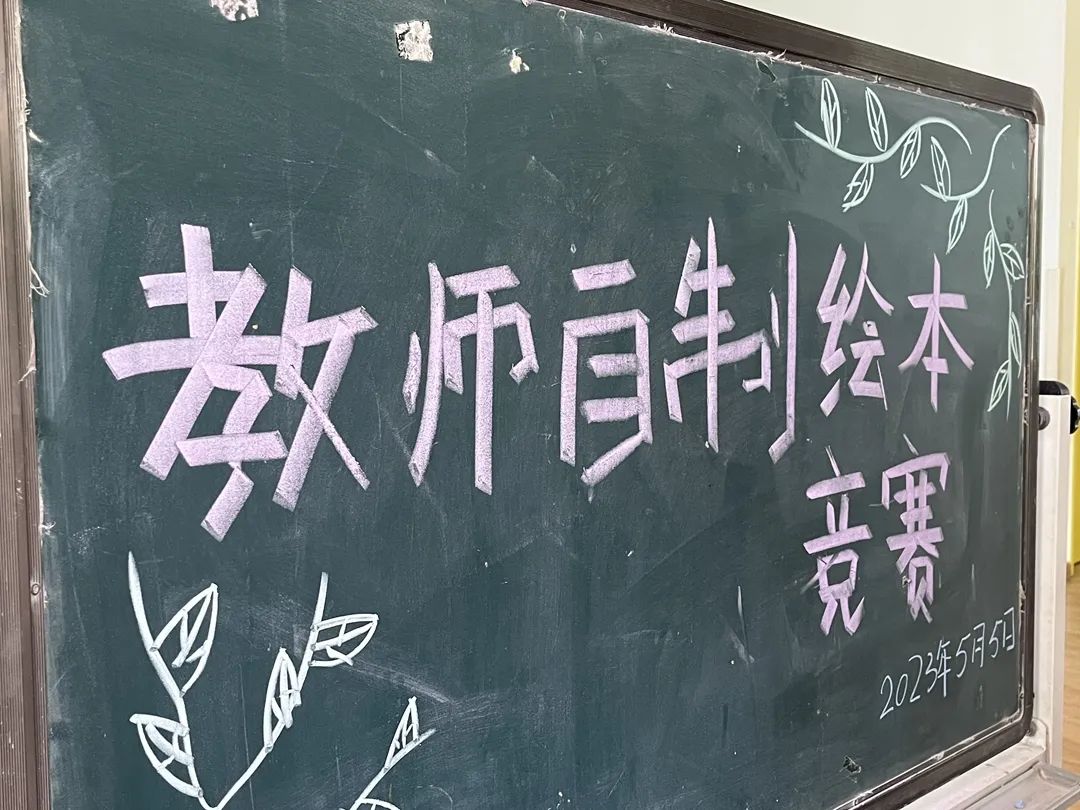 教师自制绘本
竞赛
2023年5月5日